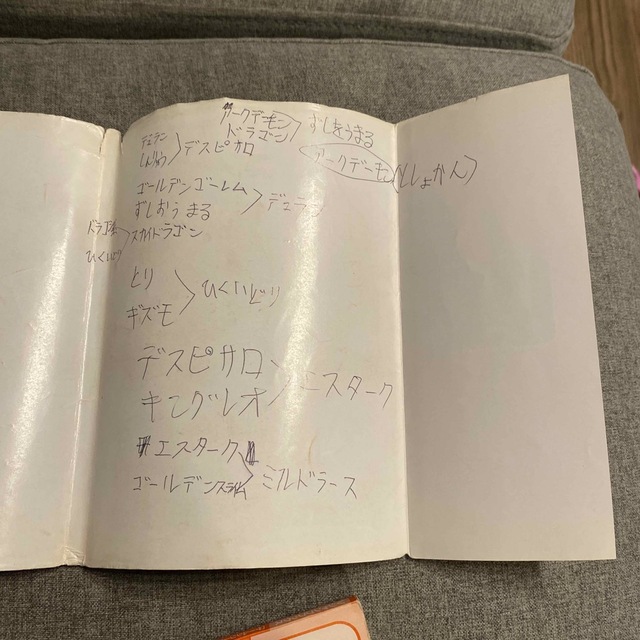 アークデモン
ドラゴン > ずしをうまる
デュラン
しんりゅう > デスピサロ
アークデーモ(しょかん)
ゴールデンゴーレム
ずしおうまる > デュラン
ドラゴン
ひくいどり > スカイドラゴン
とり
ギズモ > ひくいどり
デスピサロ
キングレオ > エスターク
エスターク
ゴールデンスライム > ミルドラース